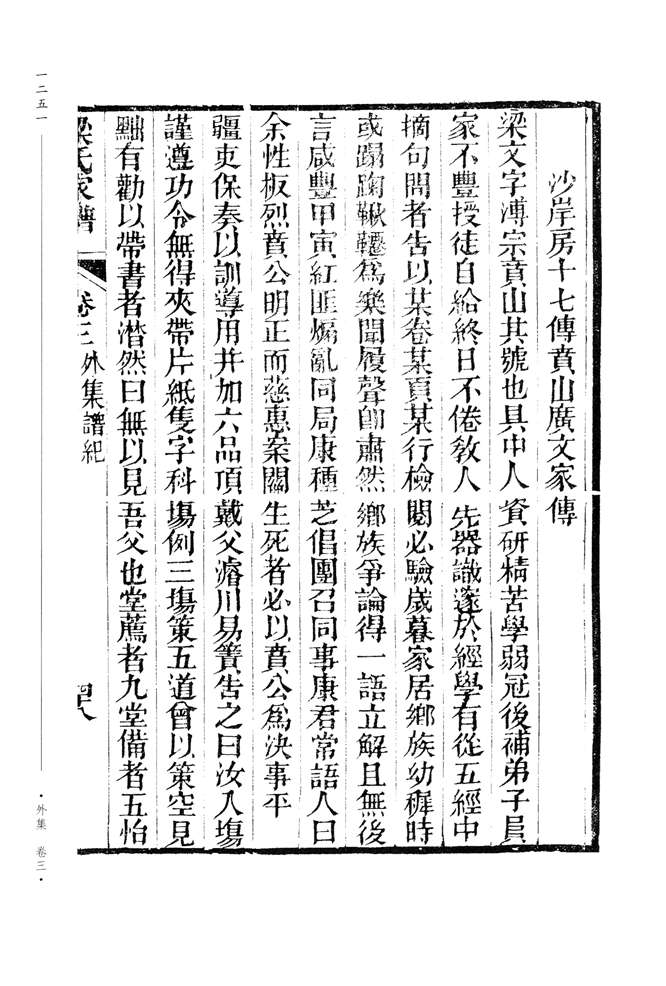 沙岸房十七傳賁山廣文家傳
梁文字溥宗賁山其號也具中人資研精苦學弱冠後補弟子員
家不豐授徒自給終日不倦敎人先器識邃於經學有從五經中
摘句問者告以某卷某頁某行檢閱必驗歲暮家居鄉族幼穉時
或蹋踘鞦韆爲樂聞履聲卽肅然鄉族爭論得一語立解且無後
言咸豐甲寅紅匪煽亂同局康種芝倡團召同事康君常語人曰
余性板烈賁公明正而慈惠案關生死者必以賁公爲決事平
疆吏保奏以訓導用并加六品頂戴父濬川易簀告之曰汝入塲
謹遵功令無得夾帶片紙隻字科塲例三塲策五道曾以策空見
黜有勸以帶書者潸然曰無以見吾父也堂薦者九堂備者五怡
梁氏家譜 卷三 外集譜紀 四八
一二五一
·外集 卷三·